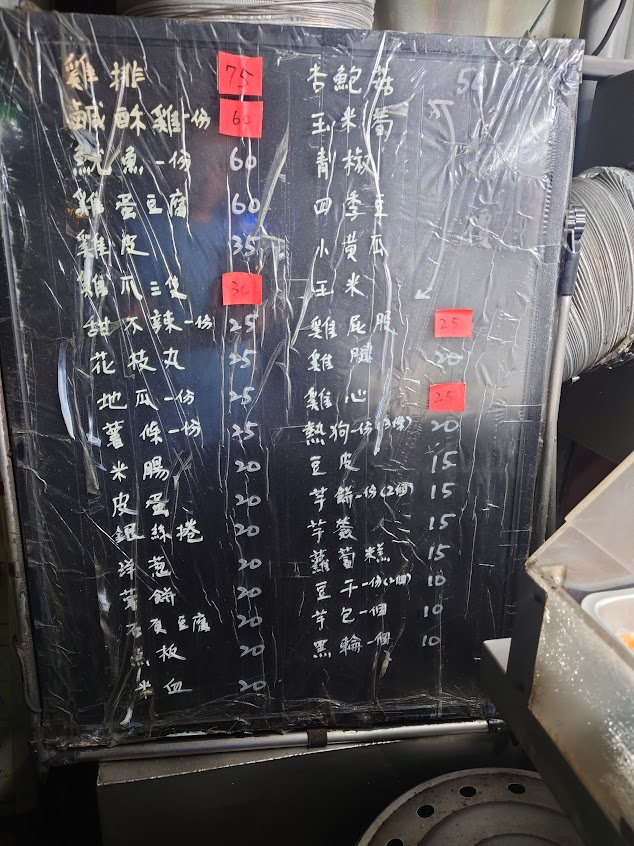 雞排 75
鹹酥雞一份 60
魷魚一份 60
雞蛋豆腐 60
雞皮 35
雞爪三隻 30
甜不辣一份 25
花枝丸 25
地瓜一份 25
薯條一份 25
米腸 20
皮蛋 20
銀絲捲 20
洋蔥 20
薯餅 20
百頁豆腐 20
魚板 20
米血 20
杏鮑菇 50
玉米筍
青椒
四季豆
小黃瓜
玉米
雞屁股 25
雞腱 20
雞心 25
熱狗一份(3條) 20
豆皮 15
芋餅一份(2個) 15
芋簽 15
蘿蔔糕 15
豆干一份(2個) 10
芋包一個 10
黑輪一個 10